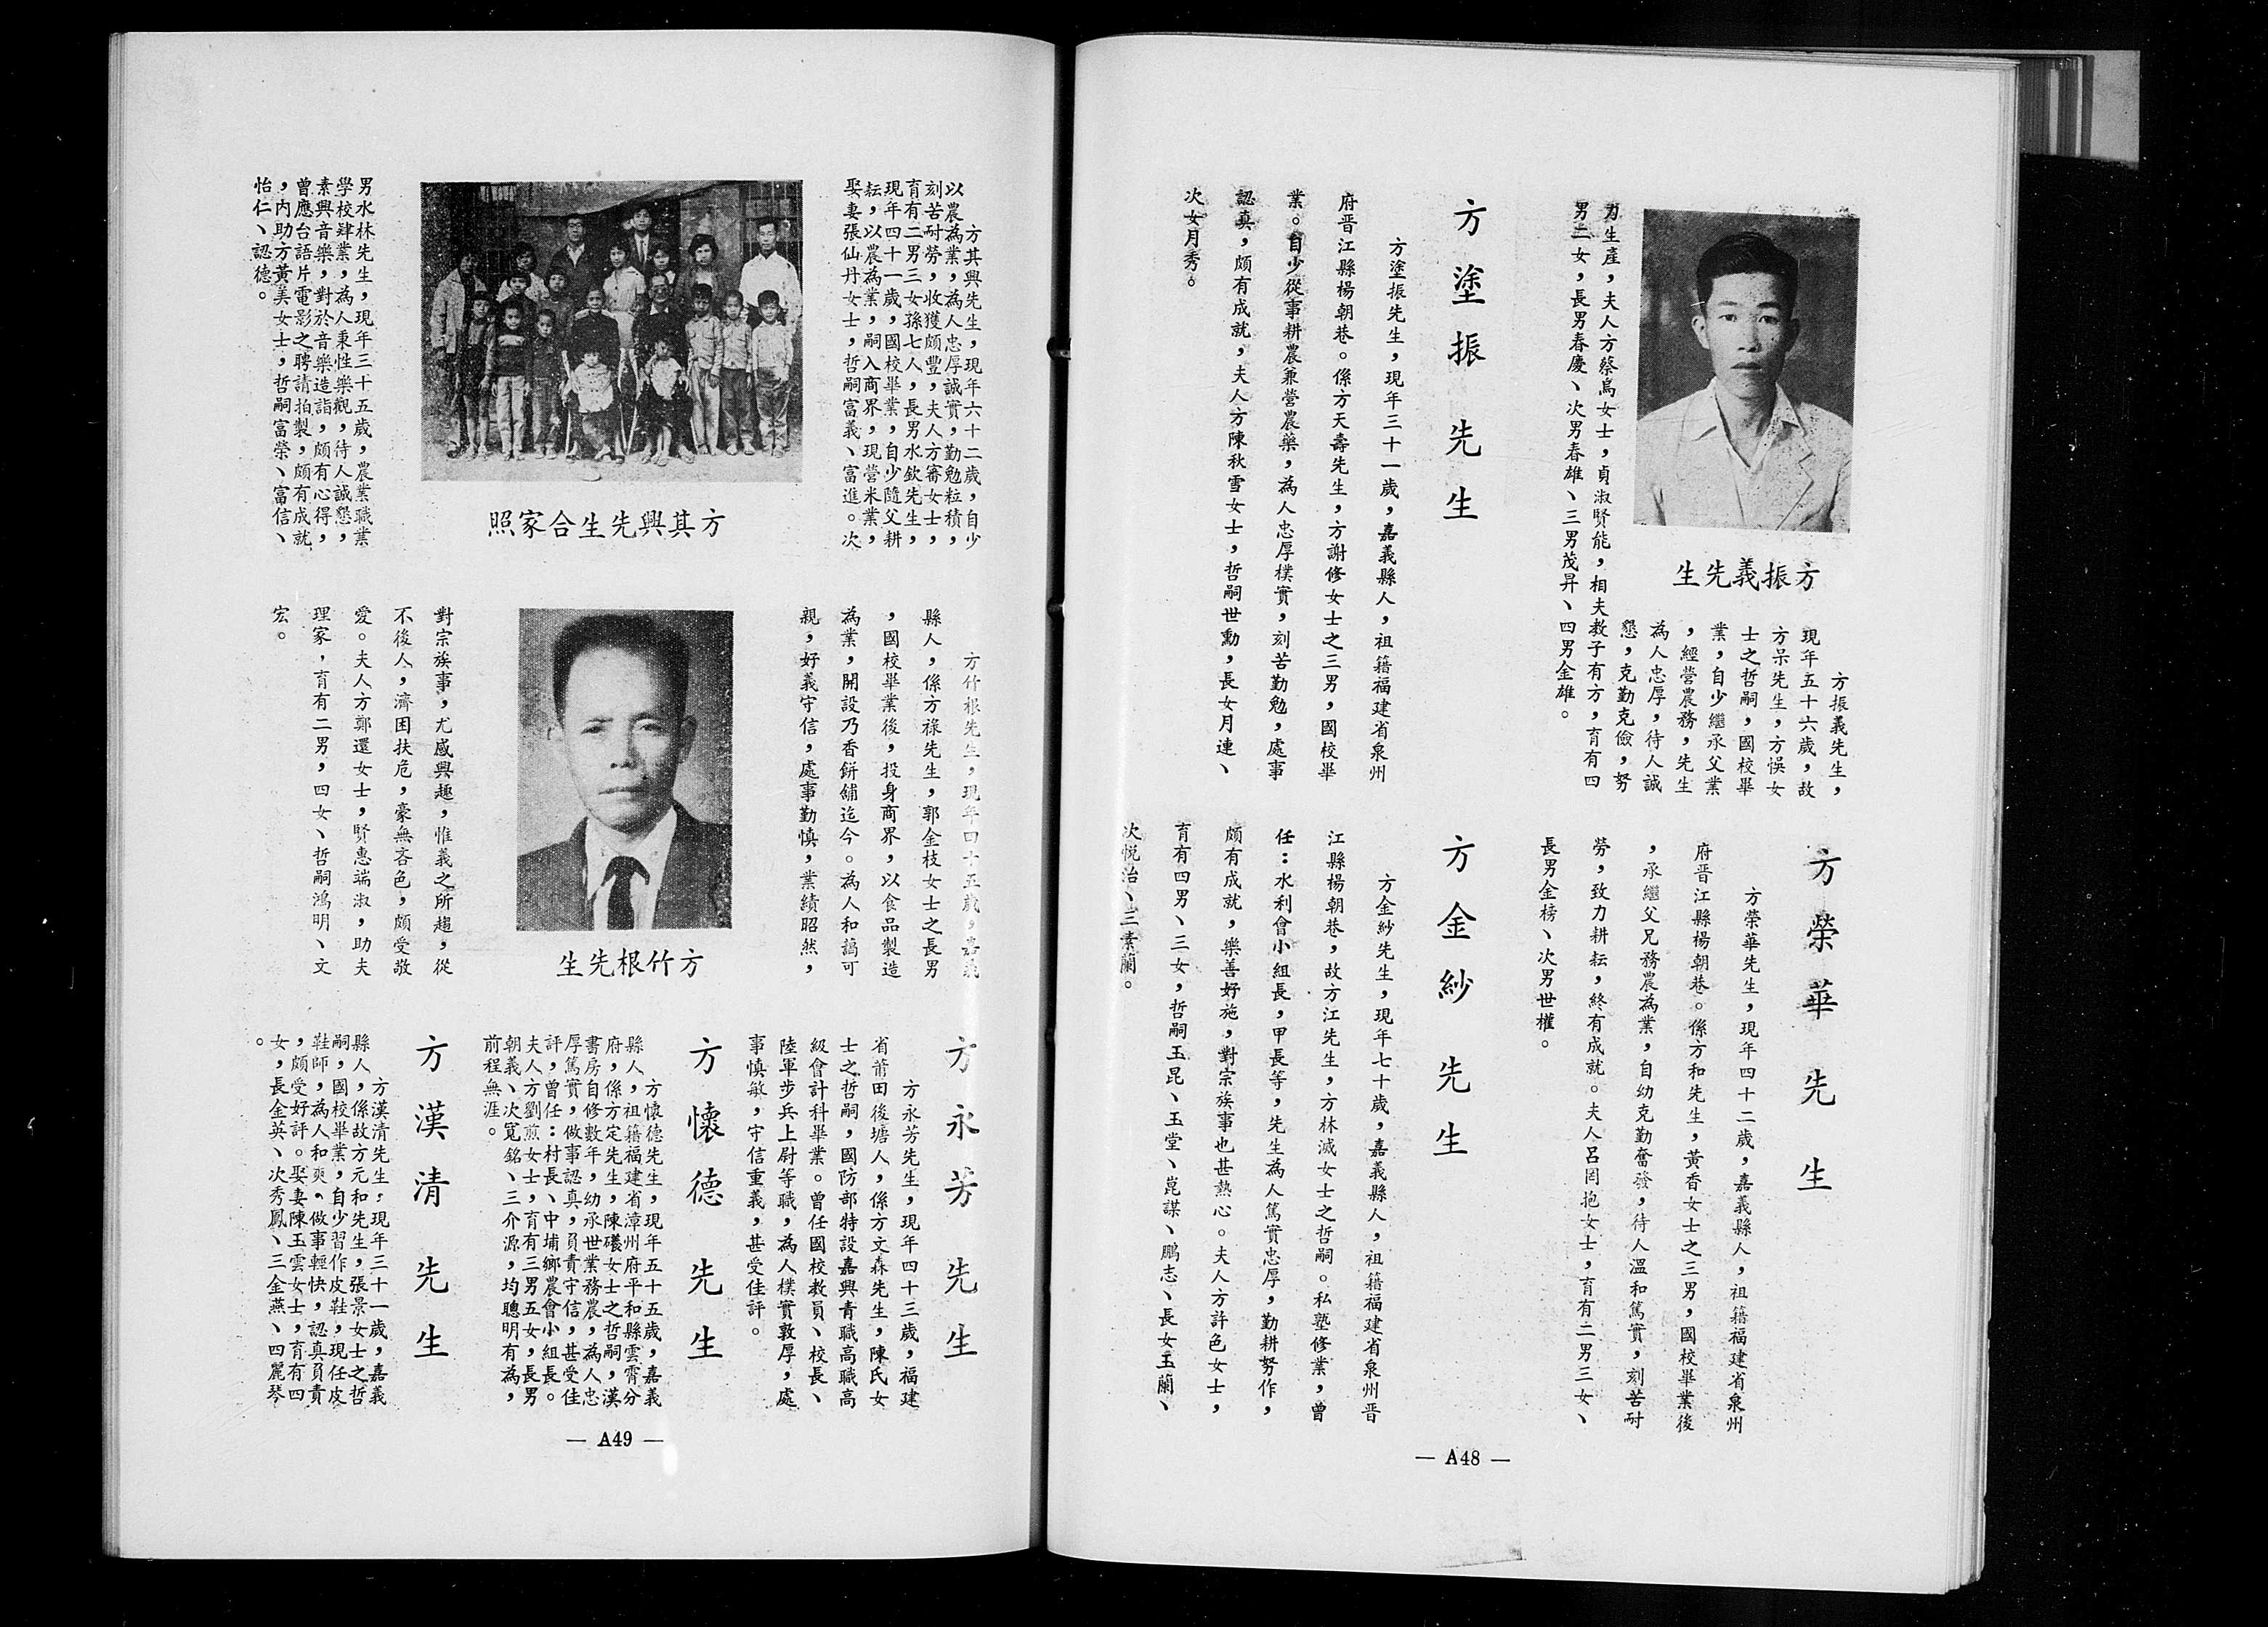 方振義先生
方振義先生，
現年五十六歲，故
方呆先生，方悞女
士之哲嗣，國校畢
業，自少繼承父業
，經營農務，先生
為人忠厚，待人誠
懇，克勤克儉，努
力生產，夫人方蔡烏女士，貞淑賢能，相夫教子有方，育有四
男二女，長男春慶、次男春雄、三男茂昇、四男金雄。
方塗振先生
方塗振先生，現年三十一歲，嘉義縣人，祖籍福建省泉州
府晋江縣楊朝巷。係方天壽先生，方謝修女士之三男，國校畢
業。自少從事耕農兼營農藥，為人忠厚樸實，刻苦勤勉，處事
認真，頗有成就，夫人方陳秋雪女士，哲嗣世勳，長女月連、
次女月秀。
方榮華先生
方榮華先生，現年四十二歲，嘉義縣人，祖籍福建省泉州
府晋江縣楊朝巷。係方和先生，黃香女士之三男，國校畢業後
，承繼父兄務農為業，自幼克勤奮發，待人溫和篤實，刻苦耐
勞，致力耕耘，終有成就。夫人呂罔抱女士，育有二男三女、
長男金榜、次男世權。
方金紗先生
方金紗先生，現年七十歲，嘉義縣人，祖籍福建省泉州晋
江縣楊朝巷，故方江先生，方林滅女士之哲嗣。私塾修業，曾
任：水利會小組長，甲長等，先生為人篤實忠厚，勤耕努作，
頗有成就，樂善好施，對宗族事也甚熱心。夫人方許色女士，
育有四男、三女，哲嗣玉昆、玉堂、崑謀、鵬志、長女玉蘭、
次悅治、三素蘭。
— A48 —
方其興先生，現年六十二歲，自少
以農為業，為人忠厚誠實，勤勉粒積，
刻苦耐勞，收獲頗豐，夫人方審女士，
育有二男三女孫七人，長男水欽先生，
現年四十一歲，國校畢業，自少隨父耕
耘，以農為業，嗣入商界，現營米業，
娶妻張仙丹女士，哲嗣富義、富進。次
方其興先生合家照
男水林先生，現年三十五歲，農業職業
學校肄業，為人秉性樂觀，待人誠懇，
素興音樂，對於音樂造詣，頗有心得，
曾應台語片電影之聘請拍製，頗有成就
，內助方黃美女士，哲嗣富榮、富信、
怡仁、認德。
方竹根先生，現年四十五歲，嘉義
縣人，係方祿先生，郭金枝女士之長男
，國校畢業後，投身商界，以食品製造
為業，開設乃香餅舖迄今。為人和藹可
親，好義守信，處事勤慎，業績昭然，
方竹根先生
對宗族事，尤感興趣，惟義之所趨，從
不後人，濟困扶危，豪無吝色，頗受敬
愛。夫人方鄭還女士，賢惠端淑，助夫
理家，育有二男，四女、哲嗣鴻明、文
宏。
方永芳先生
方永芳先生，現年四十三歲，福建
省莆田後塘人，係方文森先生，陳氏女
士之哲嗣，國防部特設嘉興青職高職高
級會計科畢業。曾任國校教員、校長、
陸軍步兵上尉等職，為人樸實敦厚，處
事慎敏，守信重義，甚受佳評。
方懷德先生
方懷德先生，現年五十五歲，嘉義
縣人，祖籍福建省漳州府平和縣雲霄分
府，係方定先生，陳礒女士之哲嗣，漢
書房自修數年，幼承世業務農，為人忠
厚篤實，做事認真，員責守信，甚受佳
評，曾任：村長、中埔鄉農會小組長。
夫人方劉煎女士，育有三男五女，長男
朝義、次寬銘、三介源，均聰明有為，
前程無涯。
方漢清先生
方漢清先生，現年三十一歲，嘉義
縣人，係故方元和先生，張景女士之哲
嗣，國校畢業，自少習作皮鞋，現任皮
鞋師，為人和爽，做事輕快，認真員責
，頗受好評。娶妻陳玉雲女士，育有四
女，長金英、次秀鳳、三金燕、四麗琴
。
— A49 —